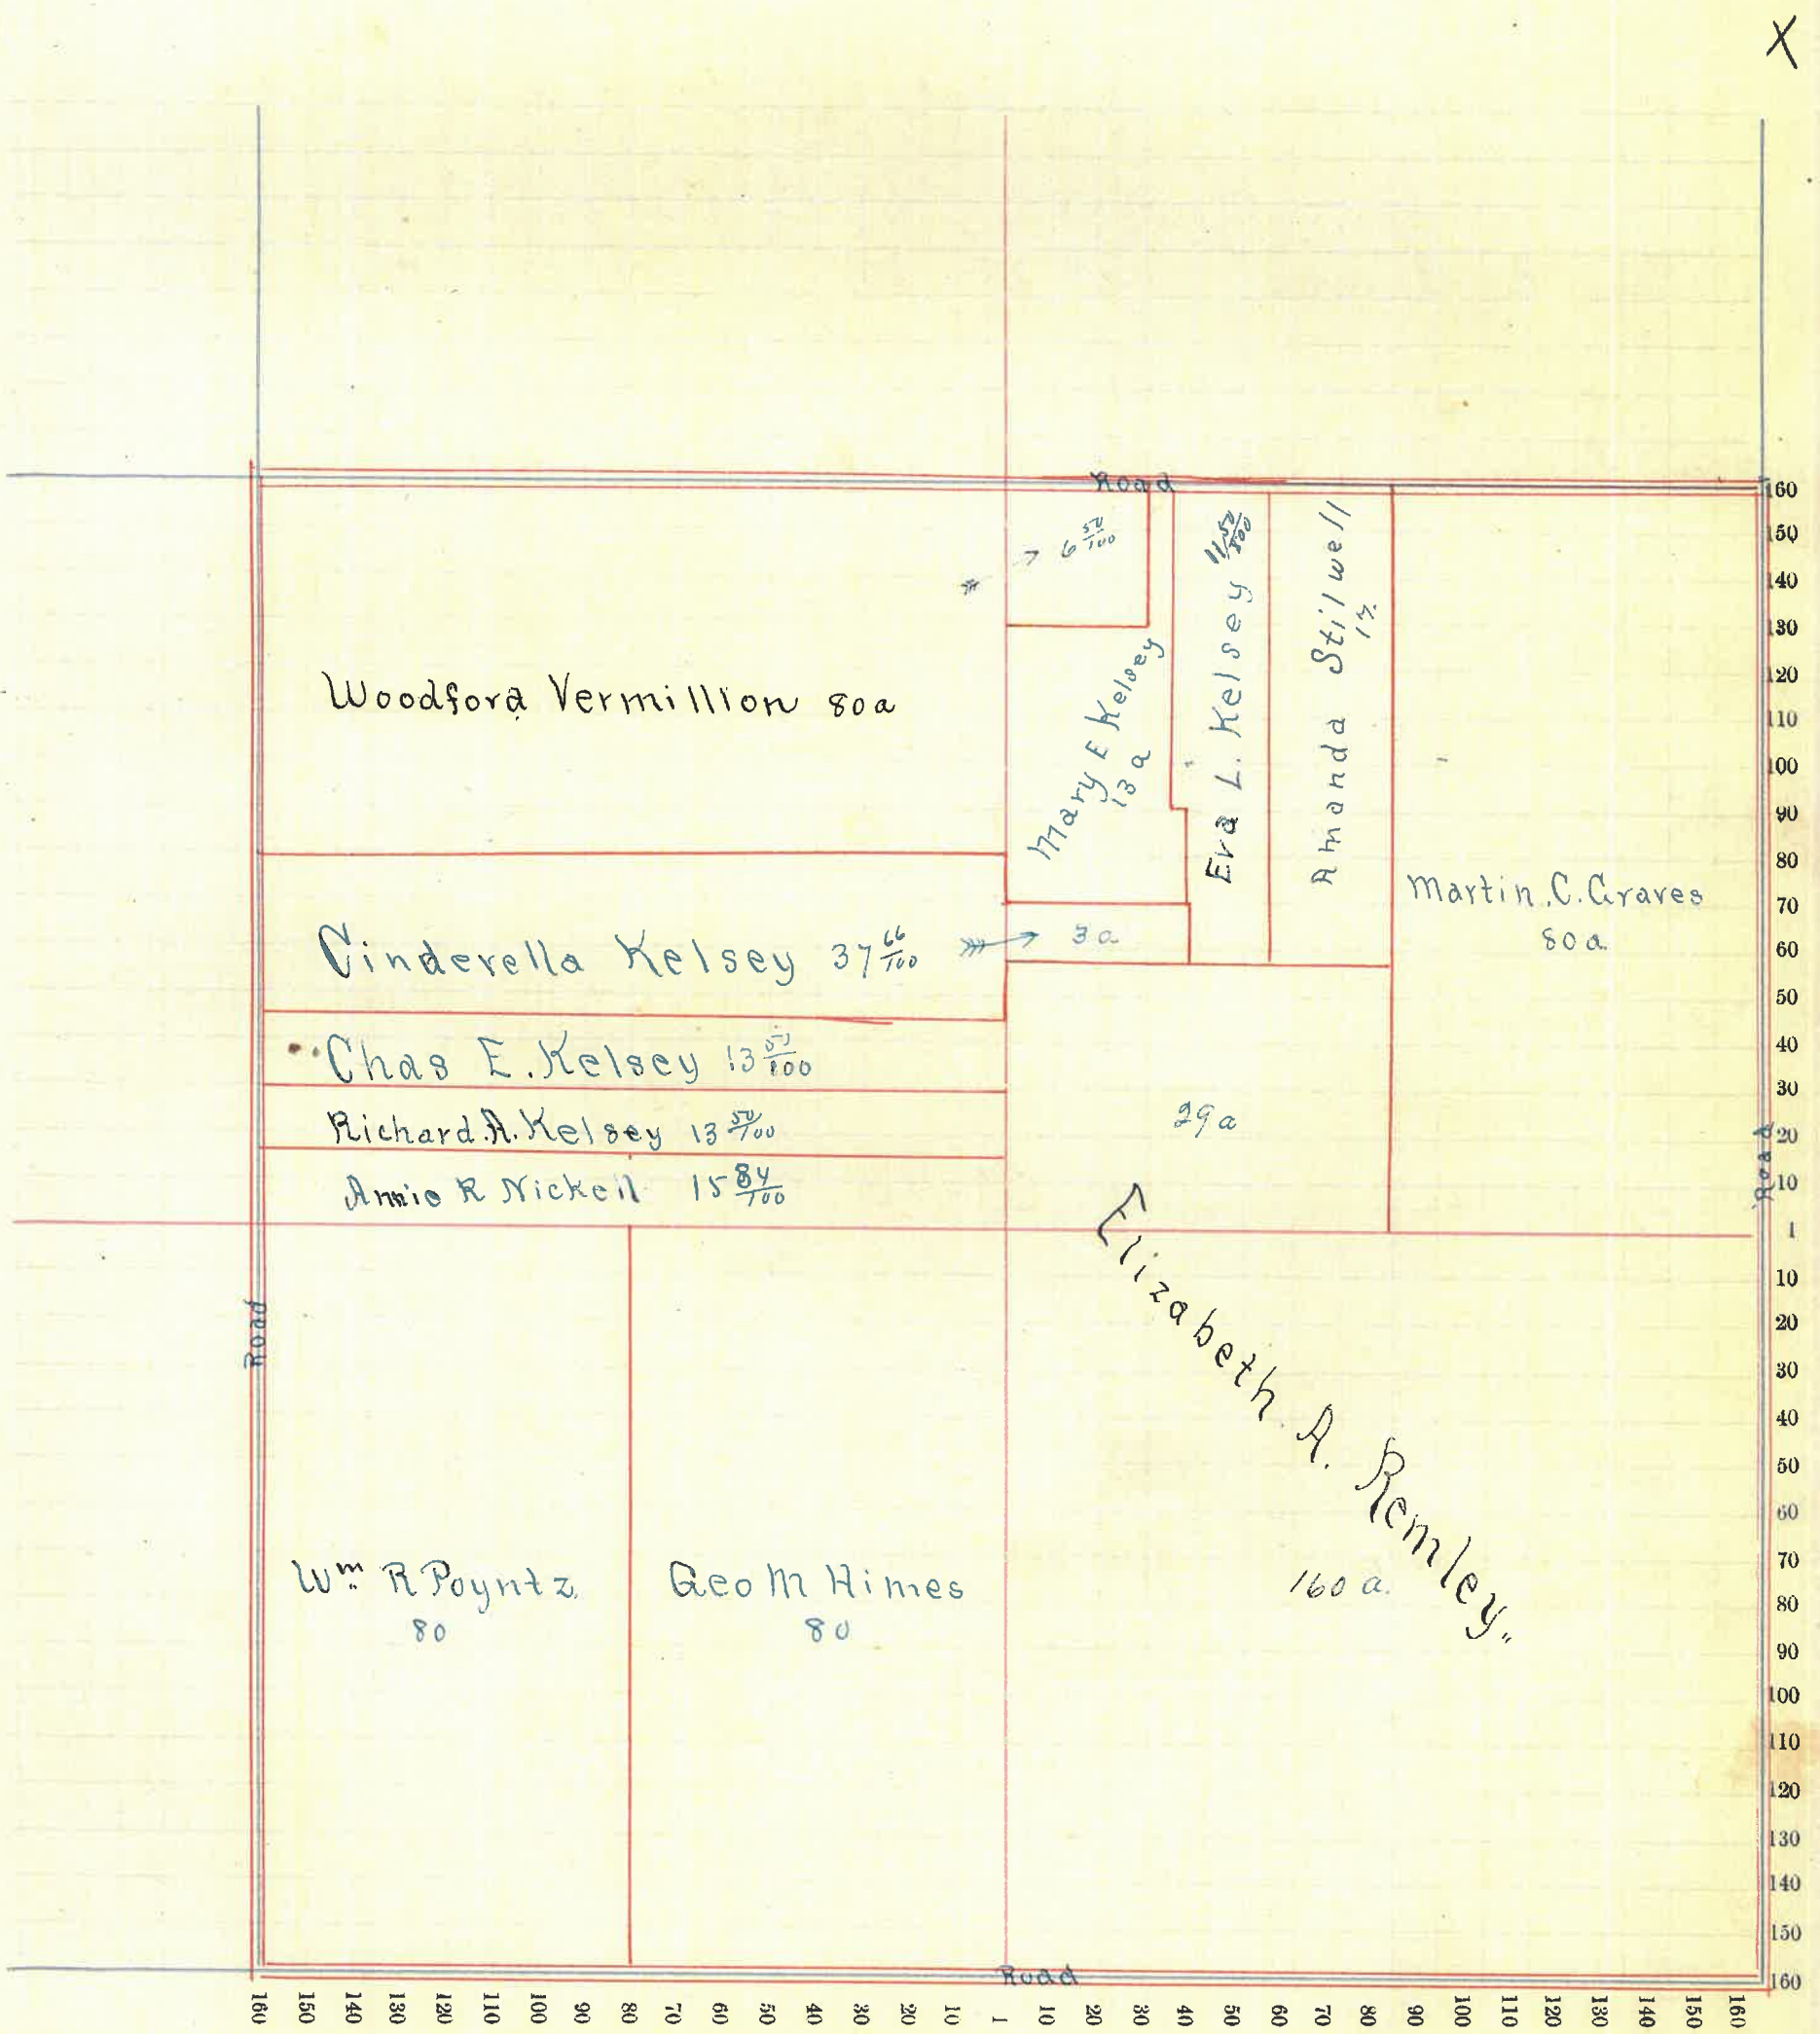 X
Road
6 50/100
Woodford Vermillion 80a
Mary E Kelsey
13 a
Eva L. Kelsey 11 50/100
Amanda Stilwell
17
Martin. C. Graves
80 a.
Cinderella Kelsey 37 66/100
3 a
Chas E. Kelsey 13 50/100
Richard. A. Kelsey 13 50/100
Annie R Nickell 15 84/100
29 a
Elizabeth. A. Remley.
160 a.
Wm R Poyntz
80
Geo M Himes
80
Road
Road
Road
160
150
140
130
120
110
100
90
80
70
60
50
40
30
20
10
1
10
20
30
40
50
60
70
80
90
100
110
120
130
140
150
160
160 150 140 130 120 110 100 90 80 70 60 50 40 30 20 10 1 10 20 30 40 50 60 70 80 90 100 110 120 130 140 150 160